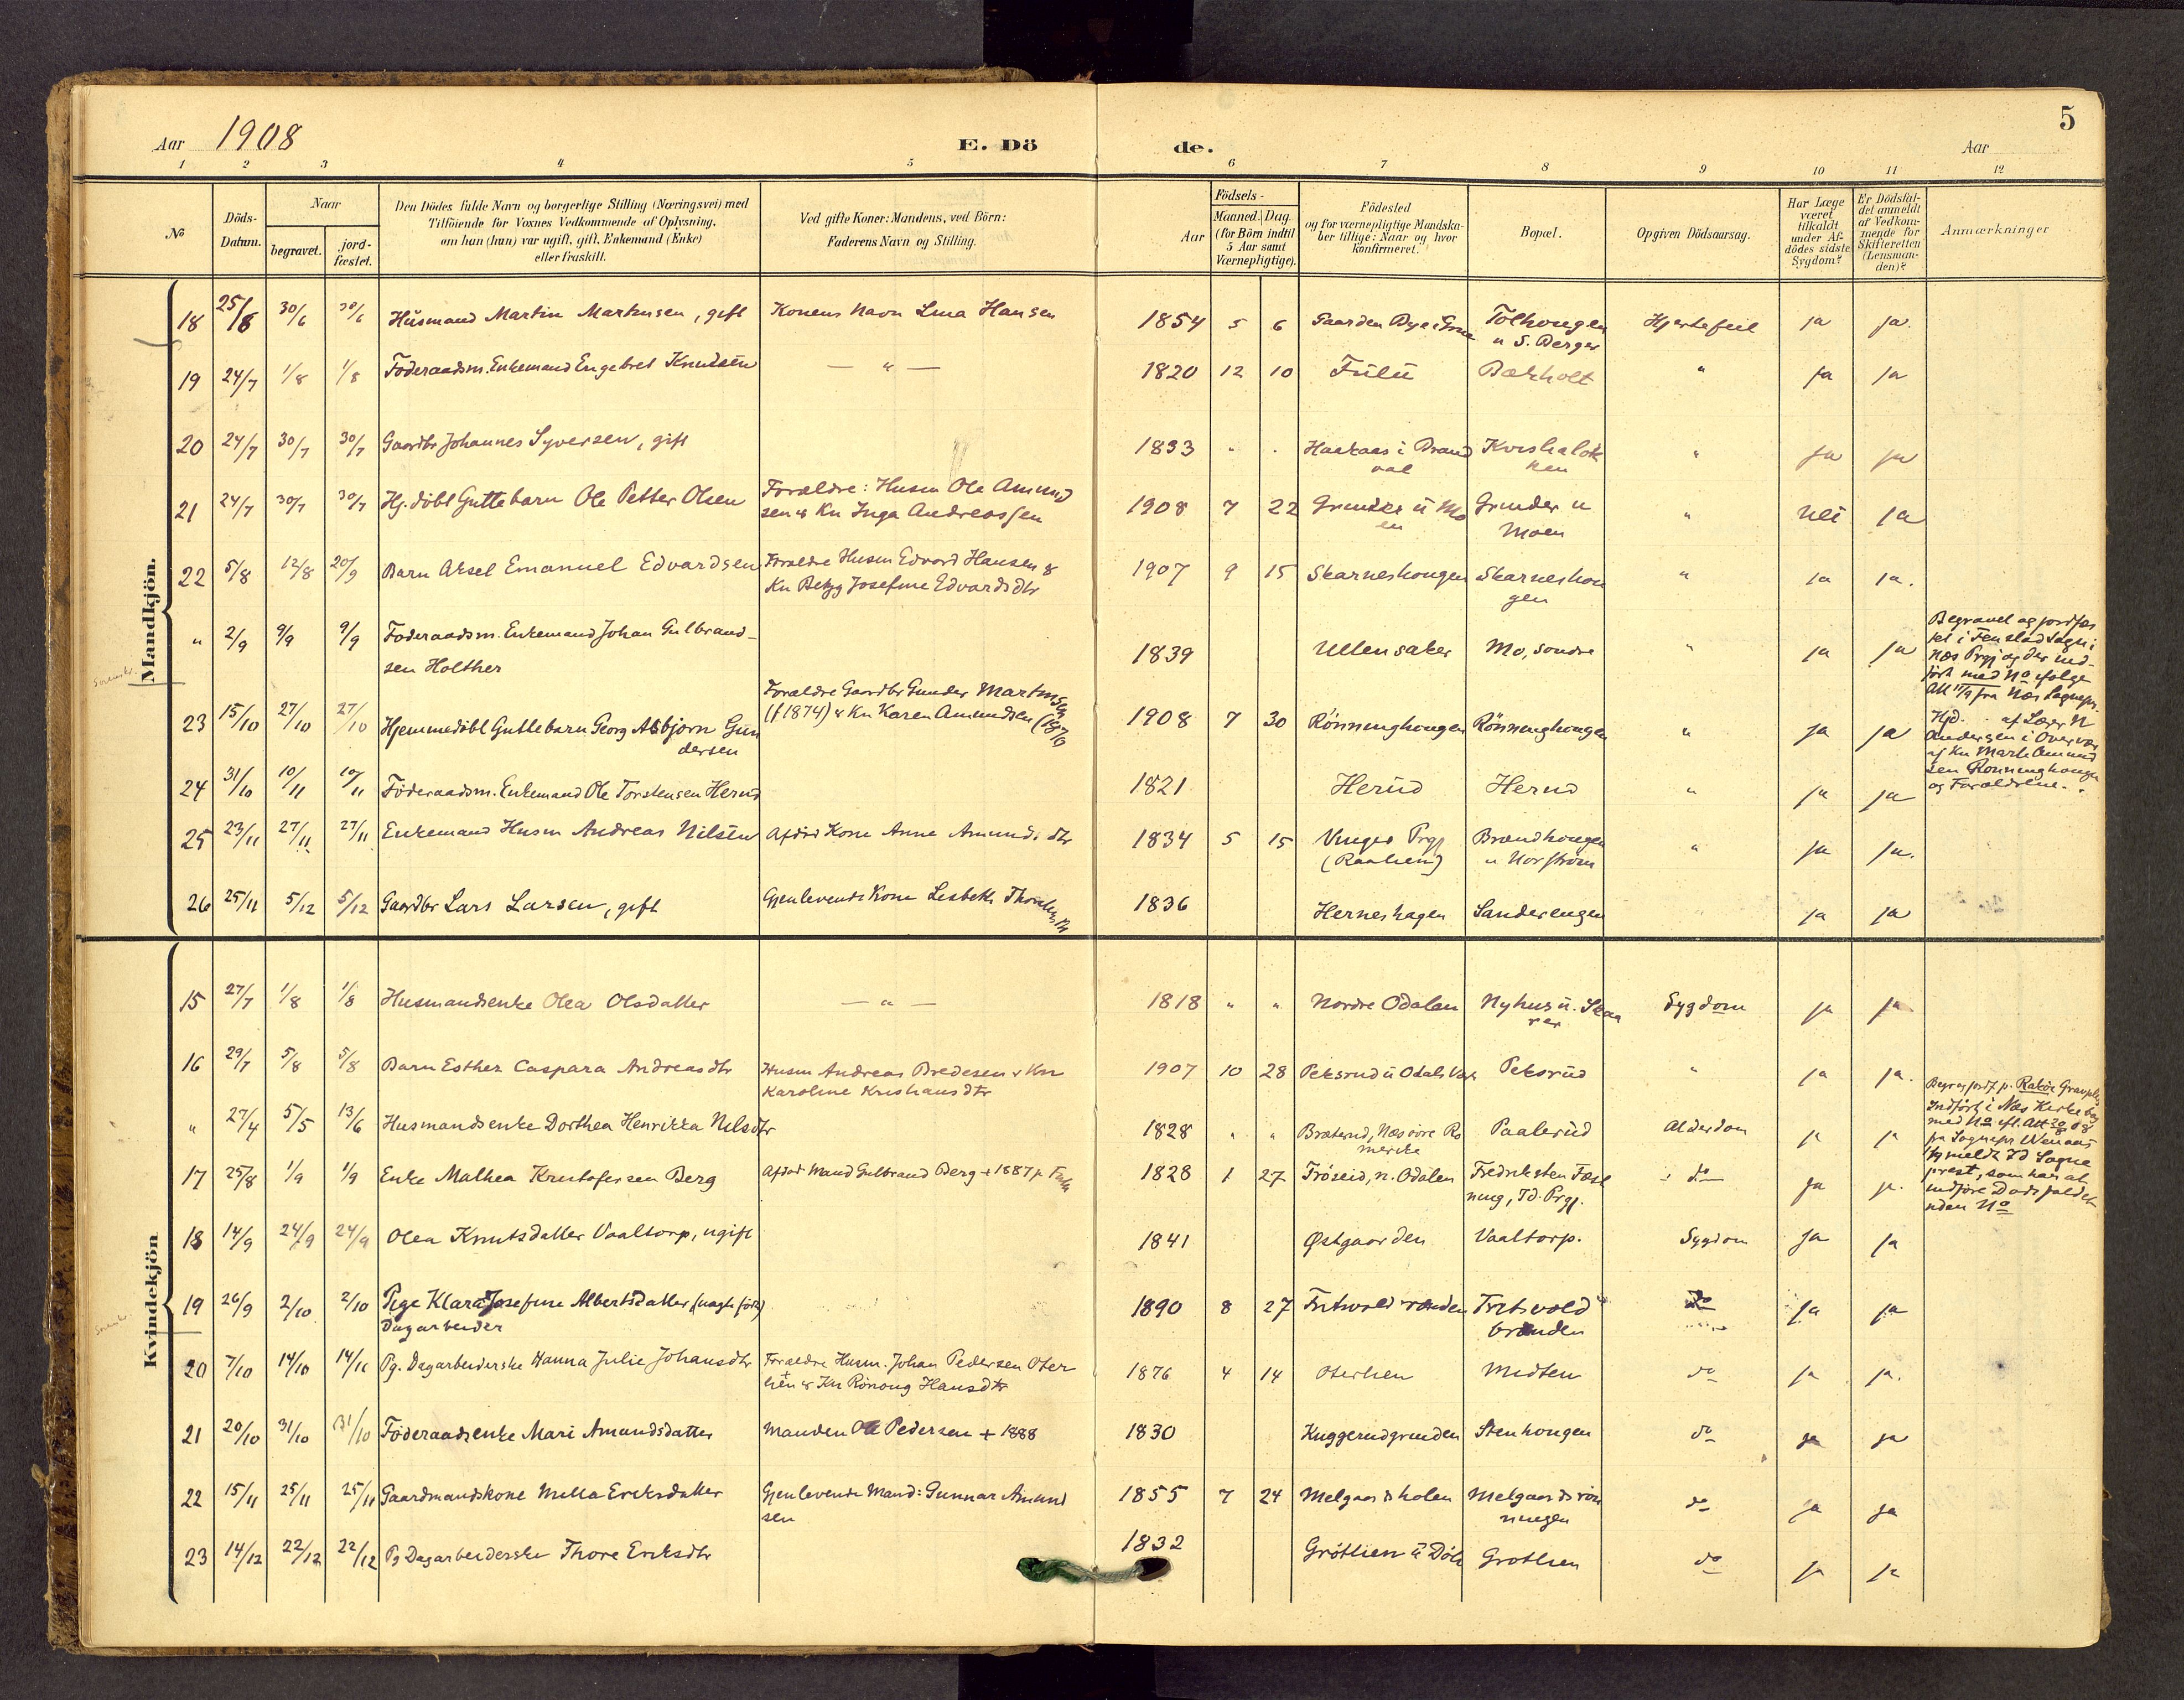 Aar 1908
E. Döde.
Aar
5
1 2 3 4 5 6 7 8 9 10 11 12
No
Döds-Datum.
Naar
begravet.
jord-fæstet.
Den Dödes fulde Navn og borgerlige Stilling (Næringsvei) med
Tilföiende for Voxnes Vedkommende af Oplysning,
om han (hun) var ugift, gift, Enkemand (Enke)
eller fraskilt.
Ved gifte Koner: Mandens, ved Börn:
Faderens Navn og Stilling.
Födsels-
Aar
Maaned. Dag.
(for Börn indtil
5 Aar samt
Værnepligtige).
Födested
og for værnepligtige Mandska-
ber tillige: Naar og hvor
konfirmeret.
Bopæl.
Opgiven Dödsaarsag.
Har Læge
været
tilkaldt
under Af-
dödes sidste
Sygdom?
Er Dödsfal-
det anmeldt
af Vedkom-
mende for
Skifteretten
(Lensman-
den)?
Anmærkninger
Mandkjön.
18 25/6 30/6 30/6 Husmand Martin Martinsen, gift Konens Navn Lina Hansen 1854 5 6 Gaarden Tolhougen Hjertefeil ja ja.
u S. Berger
19 24/7 1/8 1/8 Föderaadsm. Enkemand Engebret Knudsen — " — 1820 12 10 Fulu Bækholt " ja ja
20 24/7 30/7 30/7 Gaardbr Johannes Syversen, gift 1833 " " Haakaas i Brand Kvishaløk " ja ja
val ken
21 24/7 30/7 30/7 Hj. döbt Guttebarn Ole Petter Olsen Forældre: Husm Ole Amund 1908 7 22 Grunder u Mo Grunder u " nei ja
sen & Kn Inga Andreassen en Moen
22 5/8 12/8 20/9 Barn Aksel Emanuel Edvardsen Forældre Husm Edvard Hansen & 1907 9 15 Skarneshougen Skarneshou " ja ja.
Kn Betzy Josefine Edvardsdtr gen
" 2/9 9/9 9/9 Föderaadsm. Enkemand Johan Gulbrand- 1839 Ullensaker Mo, söndre " ja ja
sen Holther
Begravet og jordfæs
tet i Fenstad Sogn i
Næs Prgj og der ind-
ført med No ifølge
Att 11/9 fra Næs Sognepr.
23 15/10 27/10 27/10 Hjemmedöbt Guttebarn Georg Asbjørn Gun Forældre Gaardbr Gunder Martinsen 1908 7 30 Rönninghougen Rönninghougen " ja ja
dersen (f 1874) & Kn Karen Amundsen (1870
Hjd. af Lærer N
Andersen i Overvær
af Kn Marte Amund
sen Rönninghougen
og Forældrene.
24 31/10 10/11 10/11 Föderaadsm. Enkemand Ole Torstensen Herud 1821 Herud Herud " ja ja
25 23/11 27/11 27/11 Enkemand Husm Andreas Nilsen Afdöd Kone Anne Amundsdtr 1834 5 15 Vinger Prgj Brændhougen " ja ja.
(Raahen) u Norstrom
26 25/11 5/12 5/12 Gaardbr Lars Larsen, gift Gjenlevende Kone Lisbeth 1836 Herneshagen Sanderengen ja ja
Kvindekjön
15 27/7 1/8 1/8 Husmandsenke Olea Olsdatter — " — 1818 " " Nordre Odalen Nyhus u. Skaa Sygdom ja ja
rer
16 29/7 5/8 5/8 Barn Esther Caspara Andreasdtr Husm Andreas Bredesen & Kn 1907 10 28 Peksrud u Odals Værk Peksrud " ja ja.
Karoline Kristiansdtr
" 27/4 5/5 13/6 Husmandsenke Dorthea Henrikka Nilsdtr 1828 " " Bræterud, Næs övre Ro Paalerud Alderdom ja ja
merike
Begr og jordf. p. Raköe Gravplads
Indfört i Næs Kirkebog
med No efl. Att 20/6 08
17 25/8 1/9 1/9 Enke Mathea Kristofersen Berg Afdöd Mand Gulbrand Berg + 1887 1828 1 27 Fröseid, n. Odalen Fredriksten Fæst do ja ja.
ning, Id. Prgj.
prest, som har at
indföre Dödsfaldet
uden No
18 14/9 24/9 24/9 Olea Knutsdatter Vaaltorp, ugift 1841 Østgaarden Vaaltorp. Sygdom ja ja
19 26/9 2/10 2/10 Pige Klara Josefine Albertsdatter 1890 8 27 Tritsvold do ja ja
Dagarbeider braaden
20 7/10 14/10 14/10 Pg. Dagarbeiderske Hanna Julie Johansdtr Forældre Husm. Johan Pedersen Oter 1876 4 14 Oterlien Midten do ja ja.
lien & Kn Rönoug Hansdtr
21 20/10 31/10 31/10 Föderaadsenke Mari Amundsdatter Manden Ole Pedersen + 1888 1830 Kuggerudgrunden Stenhougen do ja ja
22 15/11 25/11 25/11 Gaardmandskone Mella Eriksdatter Gjenlevende Mand: Gunnar Amund 1855 7 24 Melgaardsholen Melgaardsrön do ja ja
sen ningen
23 14/12 22/12 22/12 Pg Dagarbeiderske Thore Eriksdtr 1832 Grötlien u Döli Grotlien do ja ja